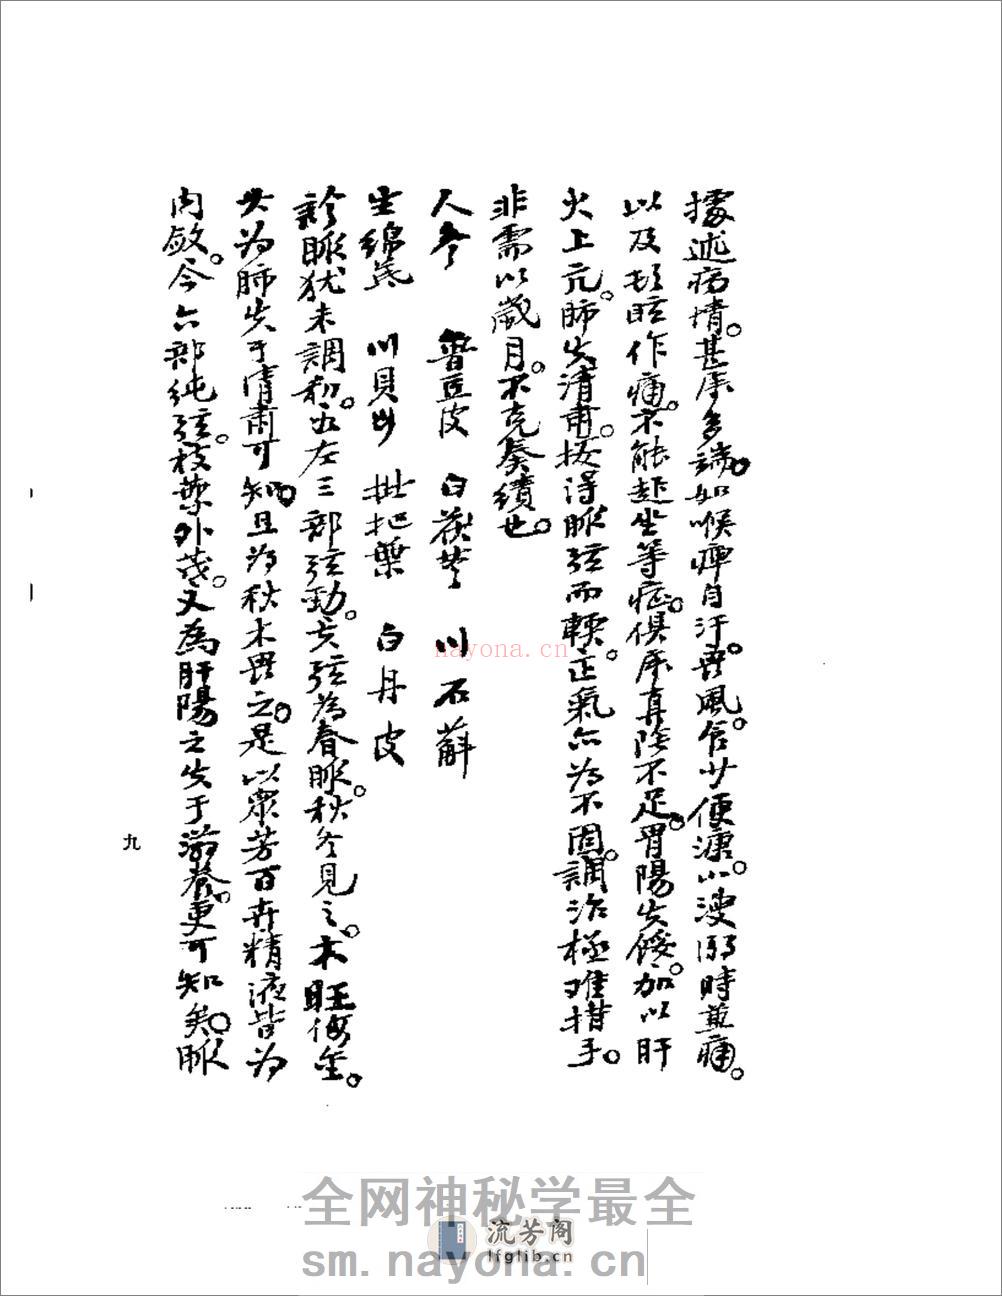 據述病情。甚屬多端。如喉痺自汗。畏風。食少便溏。小溲溺時並痛。
以及頭眩作痛。不能起坐等症。俱屬真陰不足。胃陽失餒。加以肝
火上亢。肺失清肅。按得脈弦而軟。正氣亦為不固。調治極难措手。
非需以歲月。不克奏績也。
人参 魯豆皮 白茯苓 川石斛
生綿芪 川貝母 批把葉 白丹皮
診脈犹未調和。且左三部弦勁。夫弦為春脈。秋冬見之。木旺侮金。
失為肺失于清肅可知。且為秋木畏之。是以眾芳百卉精液皆为
内斂。今六部纯弦。枝葉外茂。又為肝陽之失于滋養。更可知矣。脈
九
nayona.cn
全网神秘学最全
流芳阁
lfglib.cn
sm.nayona.cn